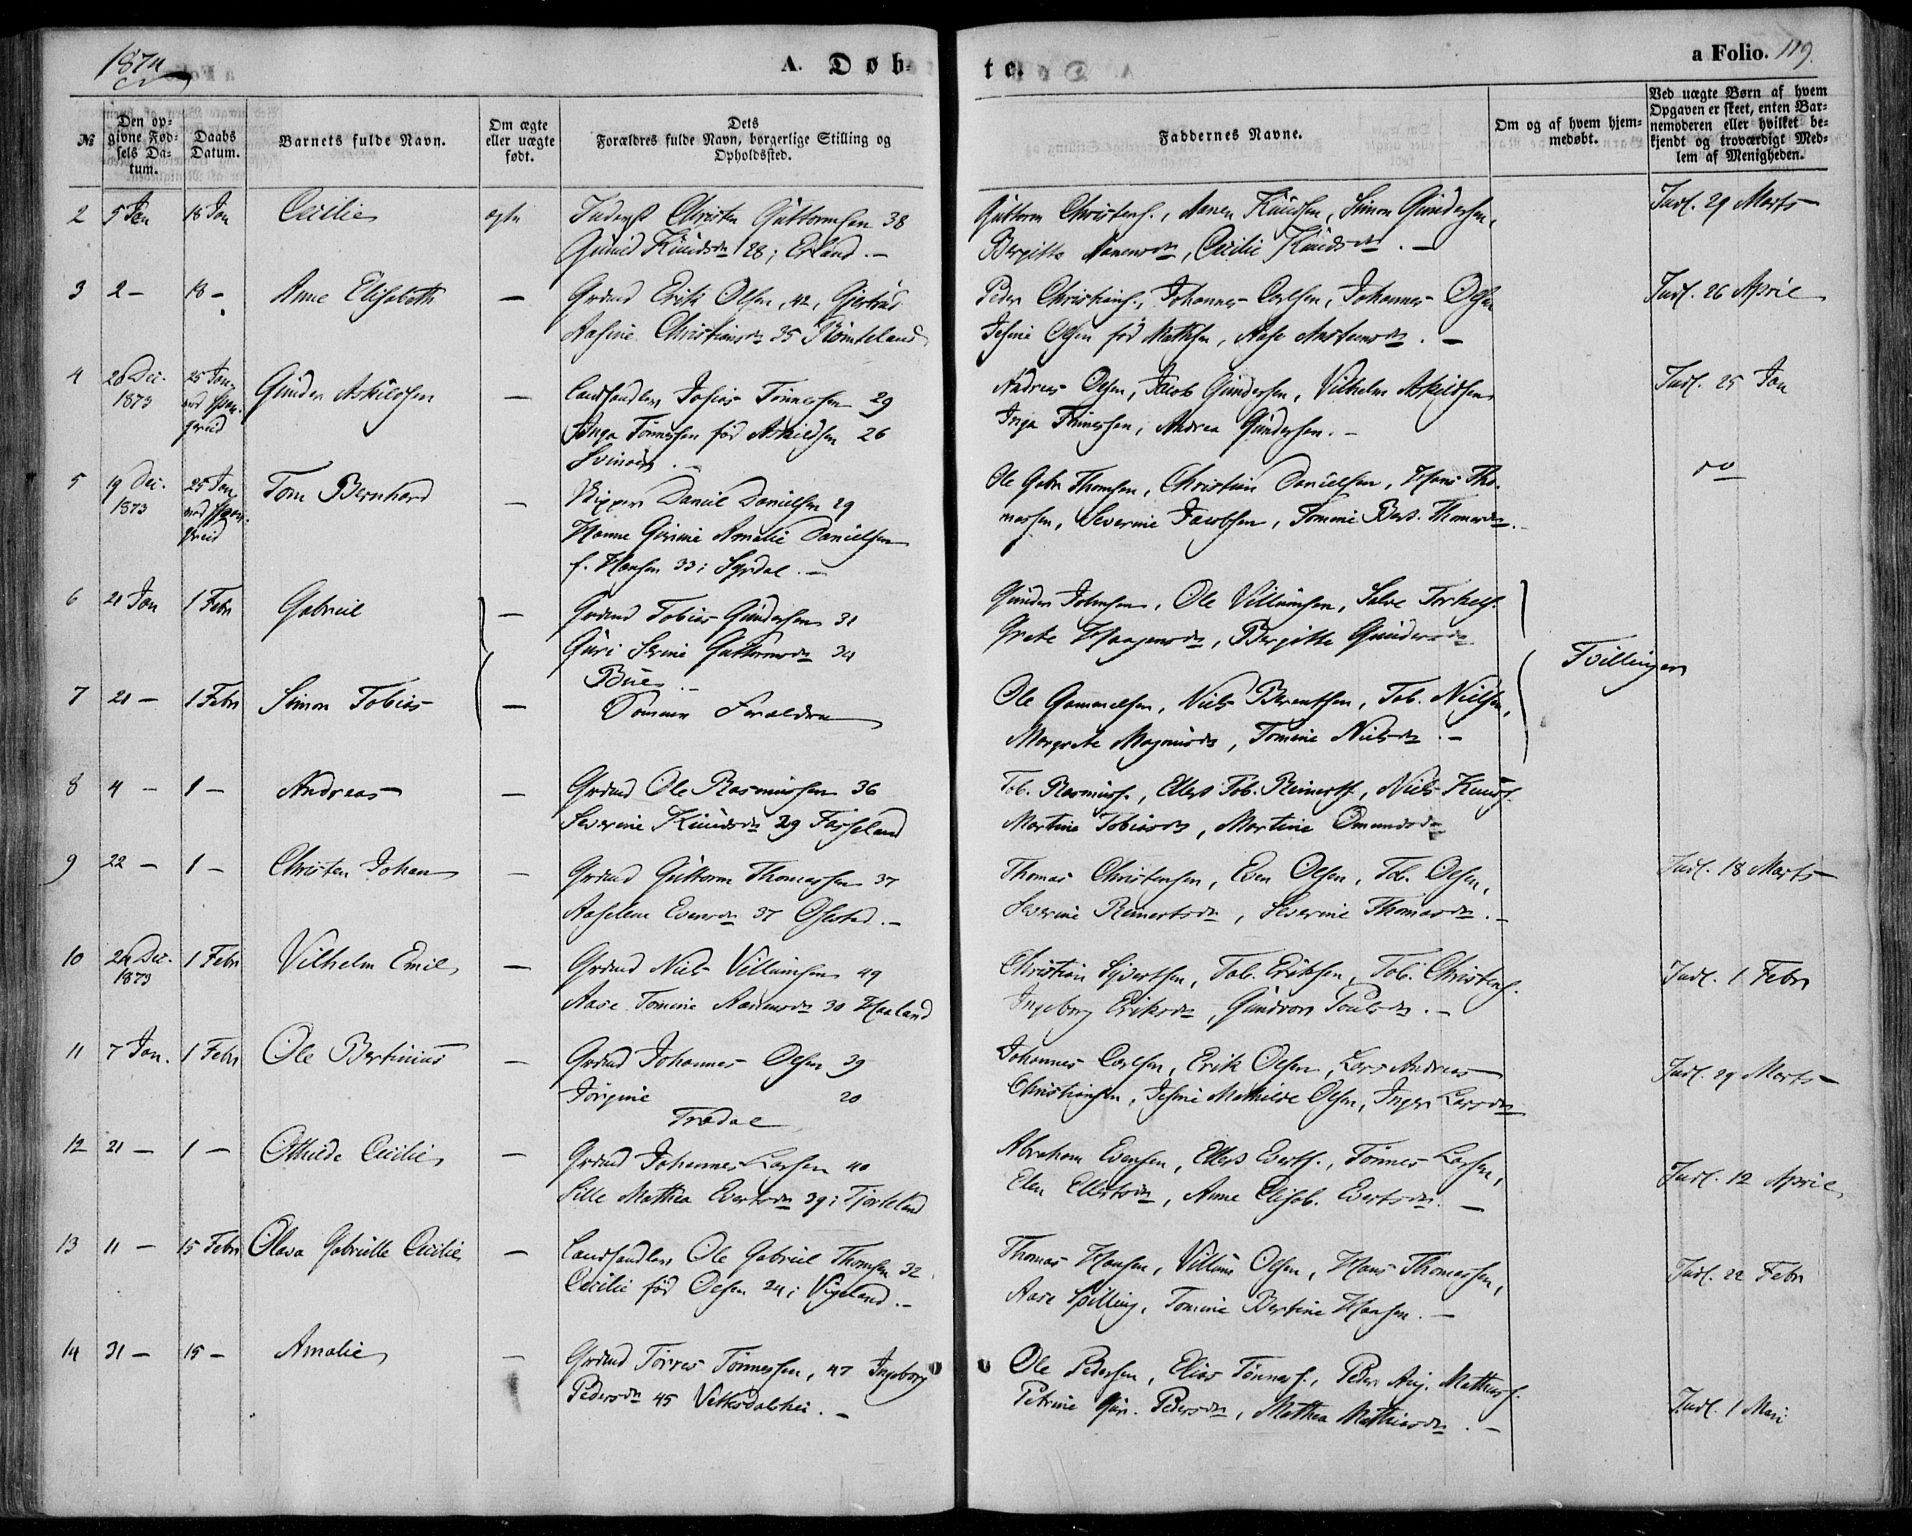 1874
A. Døb-
te.
a Folio. 119.
№
Den op-
givne Fød-
sels Da-
tum.
Daabs
Datum.
Barnets fulde Navn.
Om ægte
eller uægte
født.
Dets
Forældres fulde Navn, borgerlige Stilling og
Opholdssted.
Faddernes Navne.
Om og af hvem hjem-
medøbt.
Ved uægte Børn af hvem
Opgaven er skeet, enten Bar-
nemoderen eller hvilket be-
kjendt og troværdigt Med-
lem af Menigheden.
2 5 Jan 18 Jan Cecilie ægte Christen Guttormsen 38
Gunild Knudsdr 28; Erland. –
Guttorm Christens., Aanen Knudsen, Simon Gundersen,
Bergitte Aanensdr, Cecilie Knudsdr. –
Indl. 29 Marts
3 2 – 18 – Anne Elisabeth — Grdmd Erik Olsen, 42,
Aasine Christiansdr 35
Peder Christians., Johannes Carlsen, Johannes Olsen
Jesine Olsen fød Mathsen, Aase –
Indl. 26 April
4 28 Dec. 1873 25 Jan Gunder Askildsen — Landhandler Josias Tønnessen 29
Inga Tønnessen fød Askildsen 26
Svinør. –
Andreas Olsen, Jacob Gundersen, Vilhelm Askildsen
Inga Tønnessen, Andrea Gundersen. –
Indl. 25 Jan
5 19 Dec. 1873 25 Jan Tom Bernhard — Skipper Daniel Danielsen 29
Hanne Gurine Amalie Danielsen
f. Hansen 33; Syrdal. –
Ole Gabr. Thomsen, Christian Danielsen, Hans Tho-
massen, Severine Jacobsen, Tomine Bert. Thomasdr. –
do
6 21 Jan 1 Febr Gabriel — Grdmd Tobias Gundersen 31
Guri Serine Guttormsdr 34
Bue. –
Gunder Johnsen, Ole Villumsen, Salve Torkels.
Grete Haagensdr, Bergitte Gundersdr
Tvillinger
7 21 – 1 Febr Simon Tobias — Samme Forældre
Ole Gammelsen, Niels Berentsen, Tob. Nielsen,
Margrete Magnusdr, Tomine Nielsdr. –
8 4 – 1 – Andreas — Grdmd Ole Rasmussen 36
Severine Knudsdr 29 Faaseland
Tob. Rasmuss., Ellert Tob. Reinerts., Niels Knuds.
Martine Tobiasdr, Martine Omundsdr
9 22 – 1 – Christen Johan — Grdmd Guttorm Thomassen 37
Aaselene Evensdr 37 Ølestad. –
Thomas Christensen, Even Olsen, Tob. Olsen,
Severine Reinertsdr, Severine Thomasdr. –
Indl. 18 Marts
10 24 Dec. 1873 1 Febr Vilhelm Emil — Grdmd Niels Villumsen 49
Aase Tomine Aanensdr 30 Haaland
Christian Syvertsen, Tob. Eriksen, Tob. Christens.
Ingeborg Eriksdr, Gundvor Poulsdr. –
Indl. 1 Febr
11 7 Jan. 1 Febr Ole Bertinius — Grdmd Johannes Olsen 39
Jørgine 20
Trædal
Johannes Carlsen, Erik Olsen, Lars Andreas
Christiansen, Jesine Mathilde Olsen, Inger Larsdr
Indl. 29 Marts
12 21 – 1 – Othilde Cecilie — Grdmd Johannes Larsen 40
Sille Mathea Evertsdr 39; Tjorteland
Abraham Evensen, Ellert Everts., Tønnes Larsen,
Elen Ellertsdr, Anne Elisab. Evertsdr. –
Indl. 12 April
13 11 – 15 Febr Olava Gabrielle Cecilie — Landhandler Ole Gabriel Thomsen 32
Cecilie fød Olsen 24; Vigeland. –
Thomas Hansen, Villum Olsen, Hans Thomassen,
Aase Spilling, Tomine Bertine Hansen. –
Indl. 22 Febr
14 31 – 15 – Amalie — Grdmd Torres Tønnessen, 47 Ingeborg
Pedersdr 45 –
Ole Pedersen, Elias Tønness., Peder Aug. Mathias.
Petrine Gur. Pedersdr, Mathea Mathiasdr. –
Indl. 1 Mai